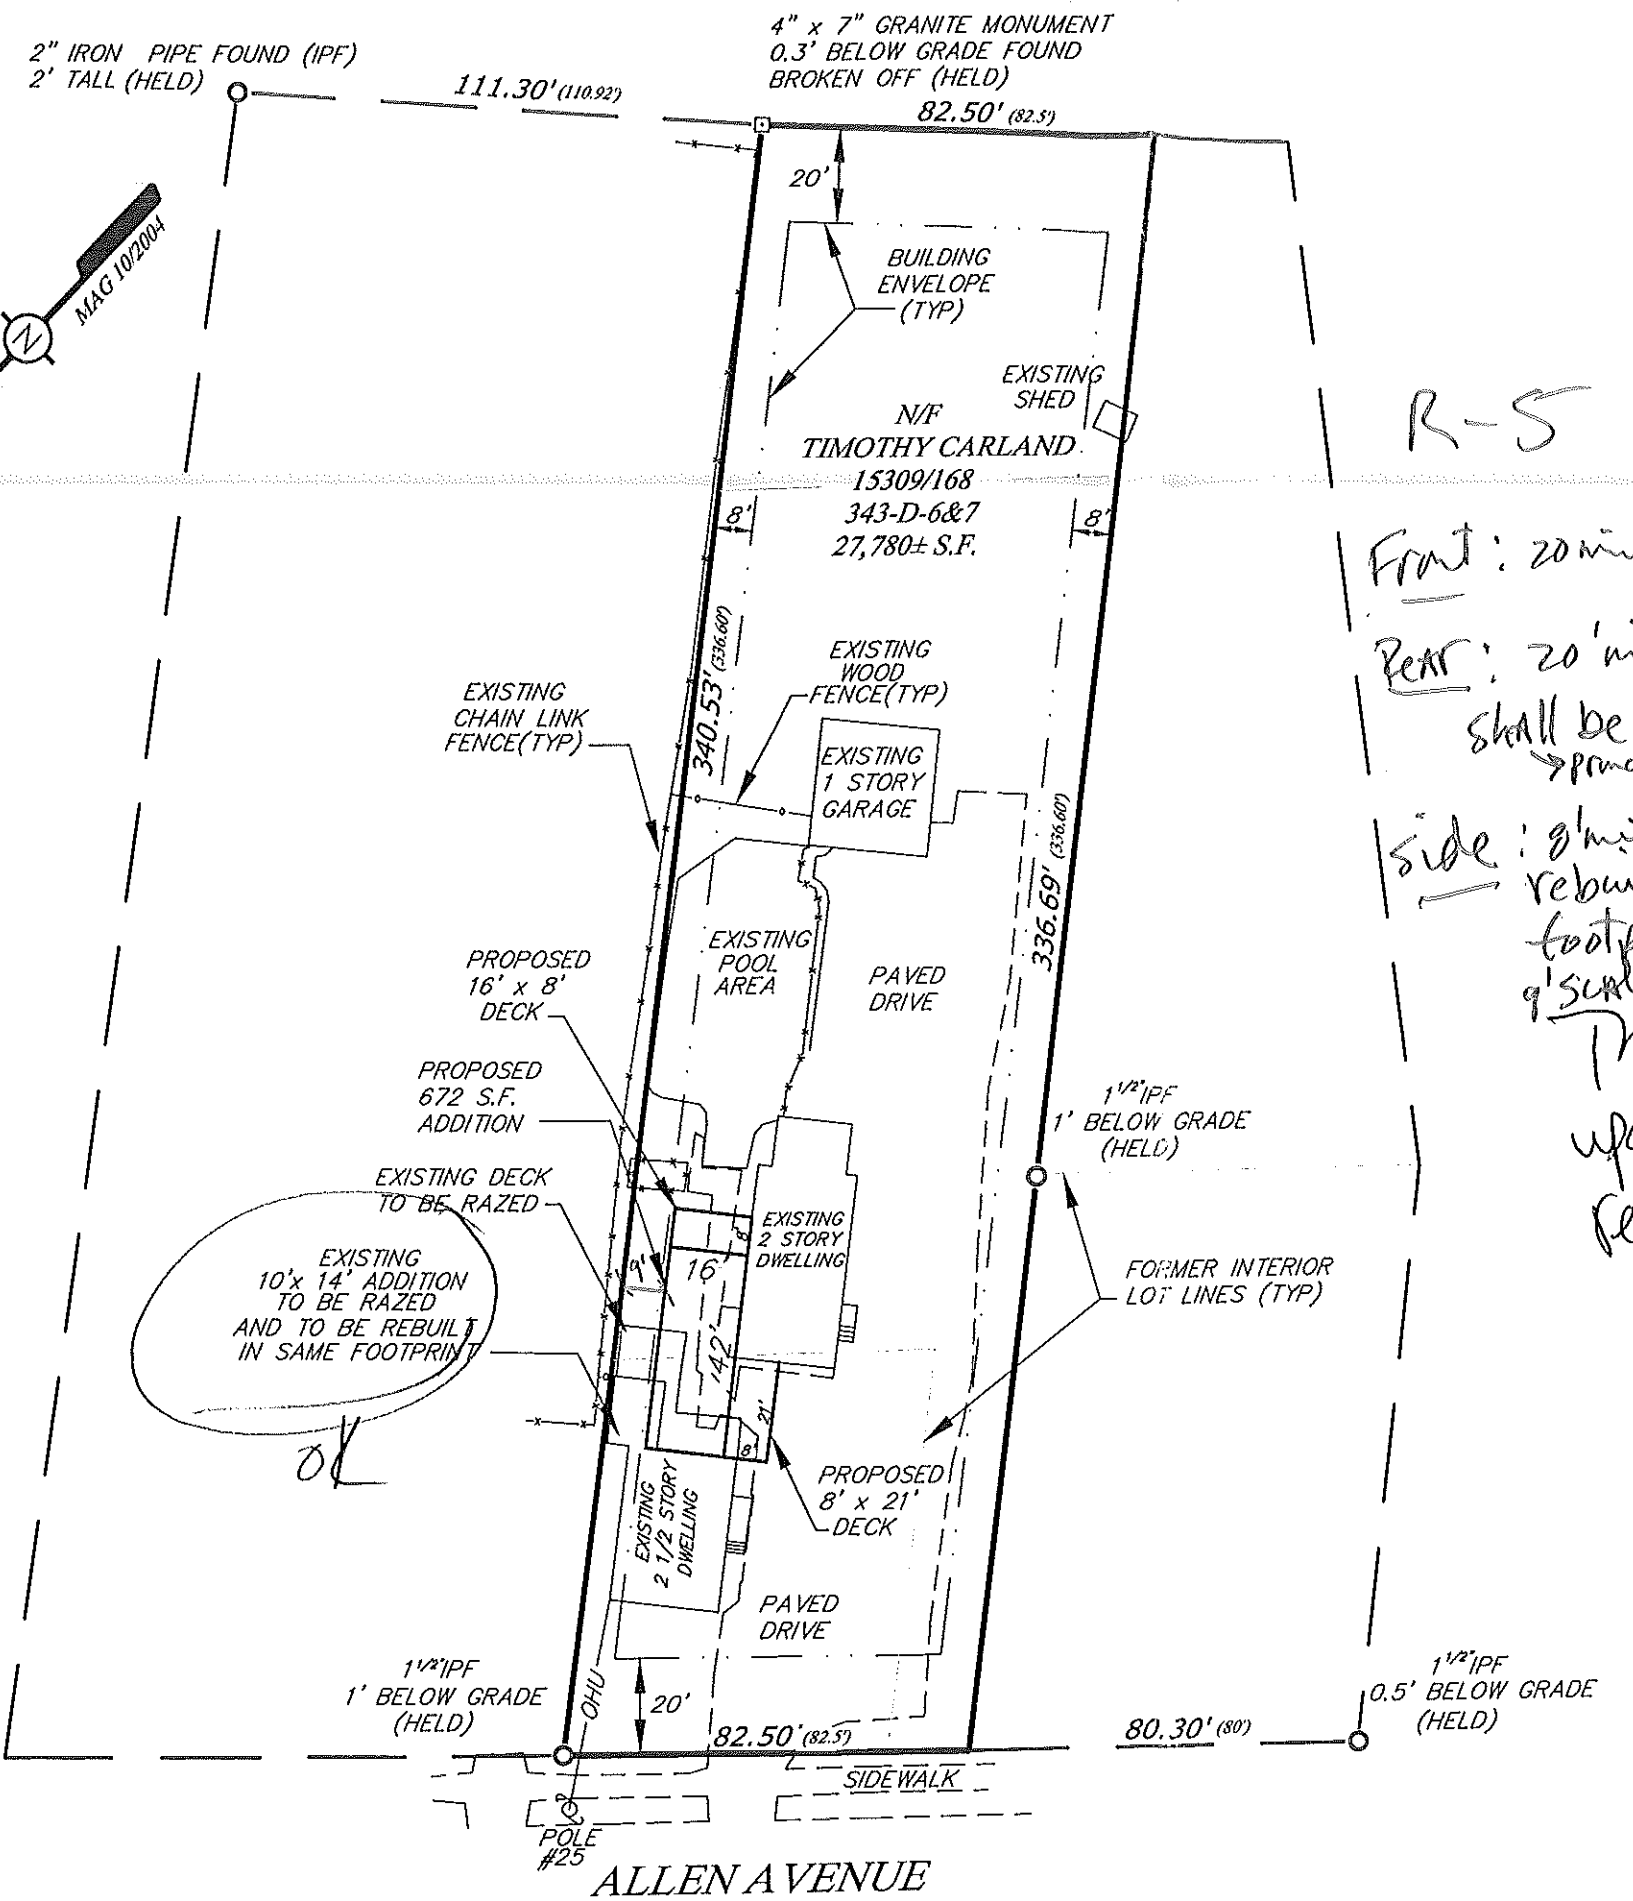 2" IRON PIPE FOUND (IPF)
2' TALL (HELD)
111.30' (110.92')
4" x 7" GRANITE MONUMENT
0.3' BELOW GRADE FOUND
BROKEN OFF (HELD)
82.50' (82.5')
MAG 10/2004
N
20'
BUILDING
ENVELOPE
(TYP)
EXISTING
SHED
N/F
TIMOTHY CARLAND
15309/168
343-D-6&7
27,780± S.F.
8'
8'
R-5
Front: 20
Rear: 20'
shall be
side: 8'
340.53' (336.60')
336.69' (336.60')
EXISTING
WOOD
FENCE(TYP)
EXISTING
CHAIN LINK
FENCE(TYP)
EXISTING
1 STORY
GARAGE
EXISTING
POOL
AREA
PAVED
DRIVE
PROPOSED
16' x 8'
DECK
PROPOSED
672 S.F.
ADDITION
EXISTING DECK
TO BE RAZED
EXISTING
10'x 14' ADDITION
TO BE RAZED
AND TO BE REBUILT
IN SAME FOOTPRINT
OK
EXISTING
2 STORY
DWELLING
8'
9'
16'
42'
21'
8'
1 1/2" IPF
1' BELOW GRADE
(HELD)
FORMER INTERIOR
LOT LINES (TYP)
PROPOSED
8' x 21'
DECK
EXISTING
2 1/2 STORY
DWELLING
PAVED
DRIVE
1 1/2" IPF
1' BELOW GRADE
(HELD)
OHU
20'
82.50' (82.5')
80.30' (80')
1 1/2" IPF
0.5' BELOW GRADE
(HELD)
SIDEWALK
POLE
#25
ALLEN AVENUE